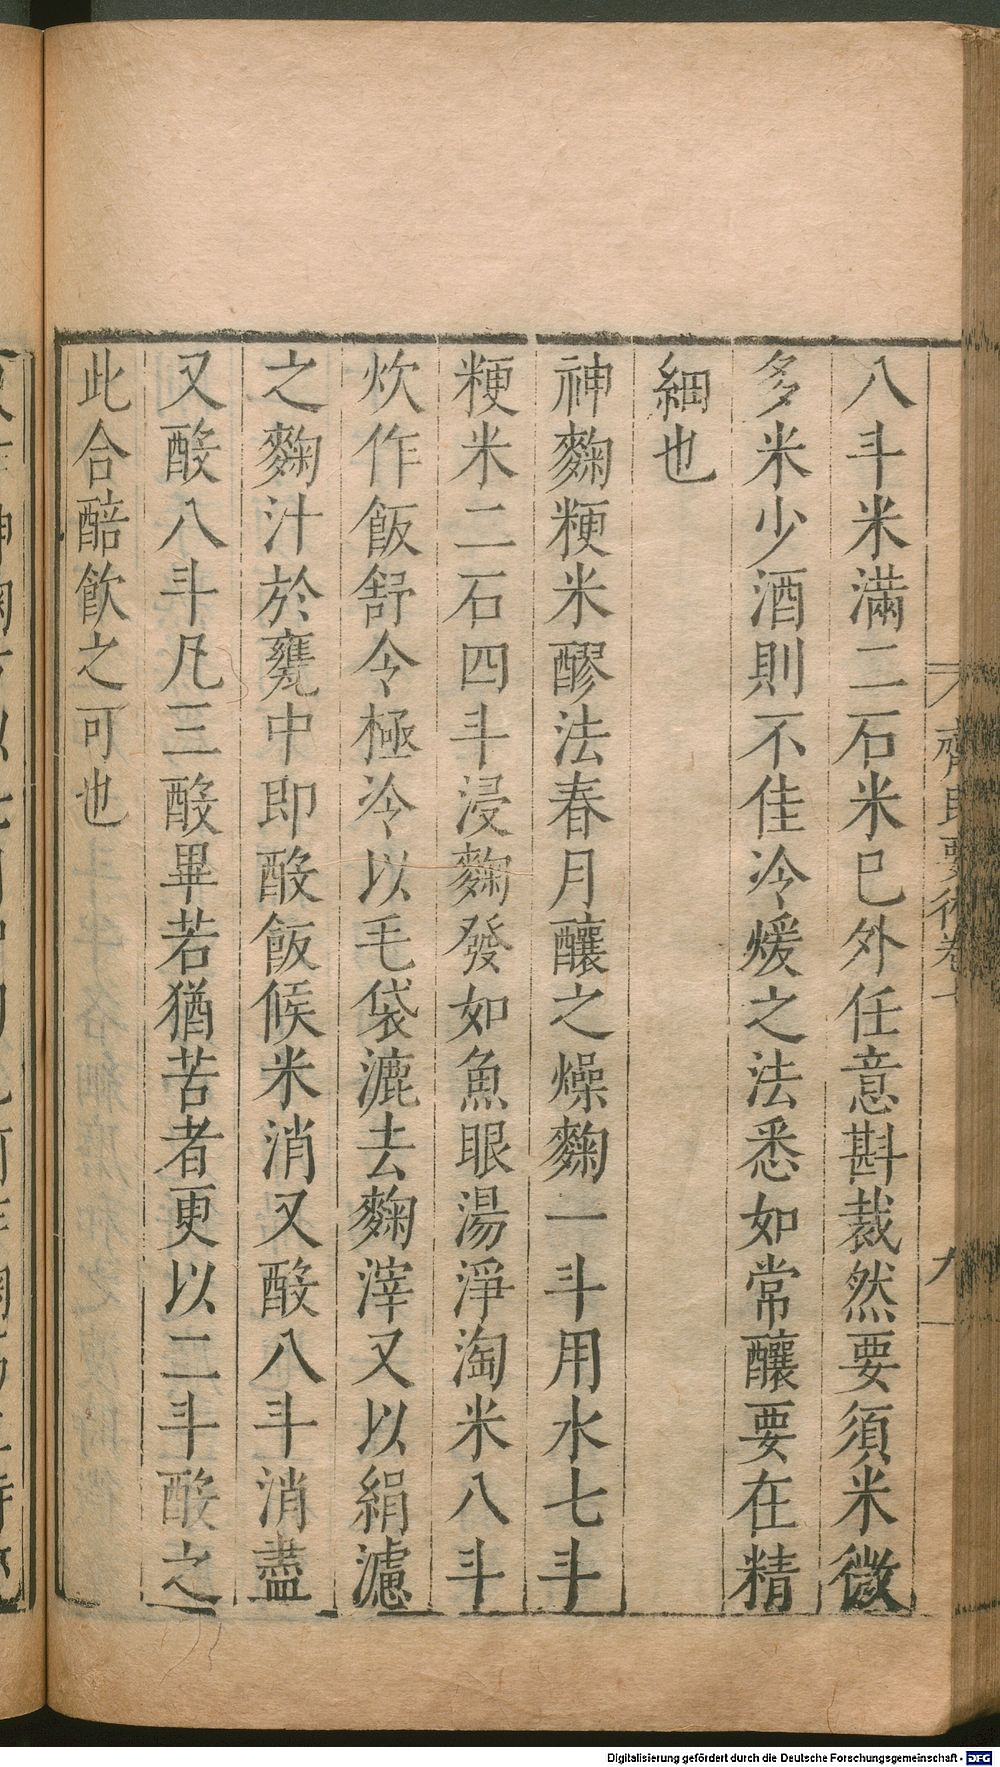 八斗米滿二石米已外任意斟裁然要須米微
多米少酒則不佳冷煖之法悉如常釀要在精
細也
神麴粳米醪法春月釀之燥麴一斗用水七斗
粳米二石四斗浸麴發如魚眼湯淨淘米八斗
炊作飯舒令極冷以毛袋漉去麴滓又以絹濾
之麴汁於甕中即酘飯候米消又酘八斗消盡
又酘八斗凡三酘畢若猶苦者更以二斗酘之
此合醅飲之可也
齊民要術卷七
九
Digitalisierung gefördert durch die Deutsche Forschungsgemeinschaft - DFG